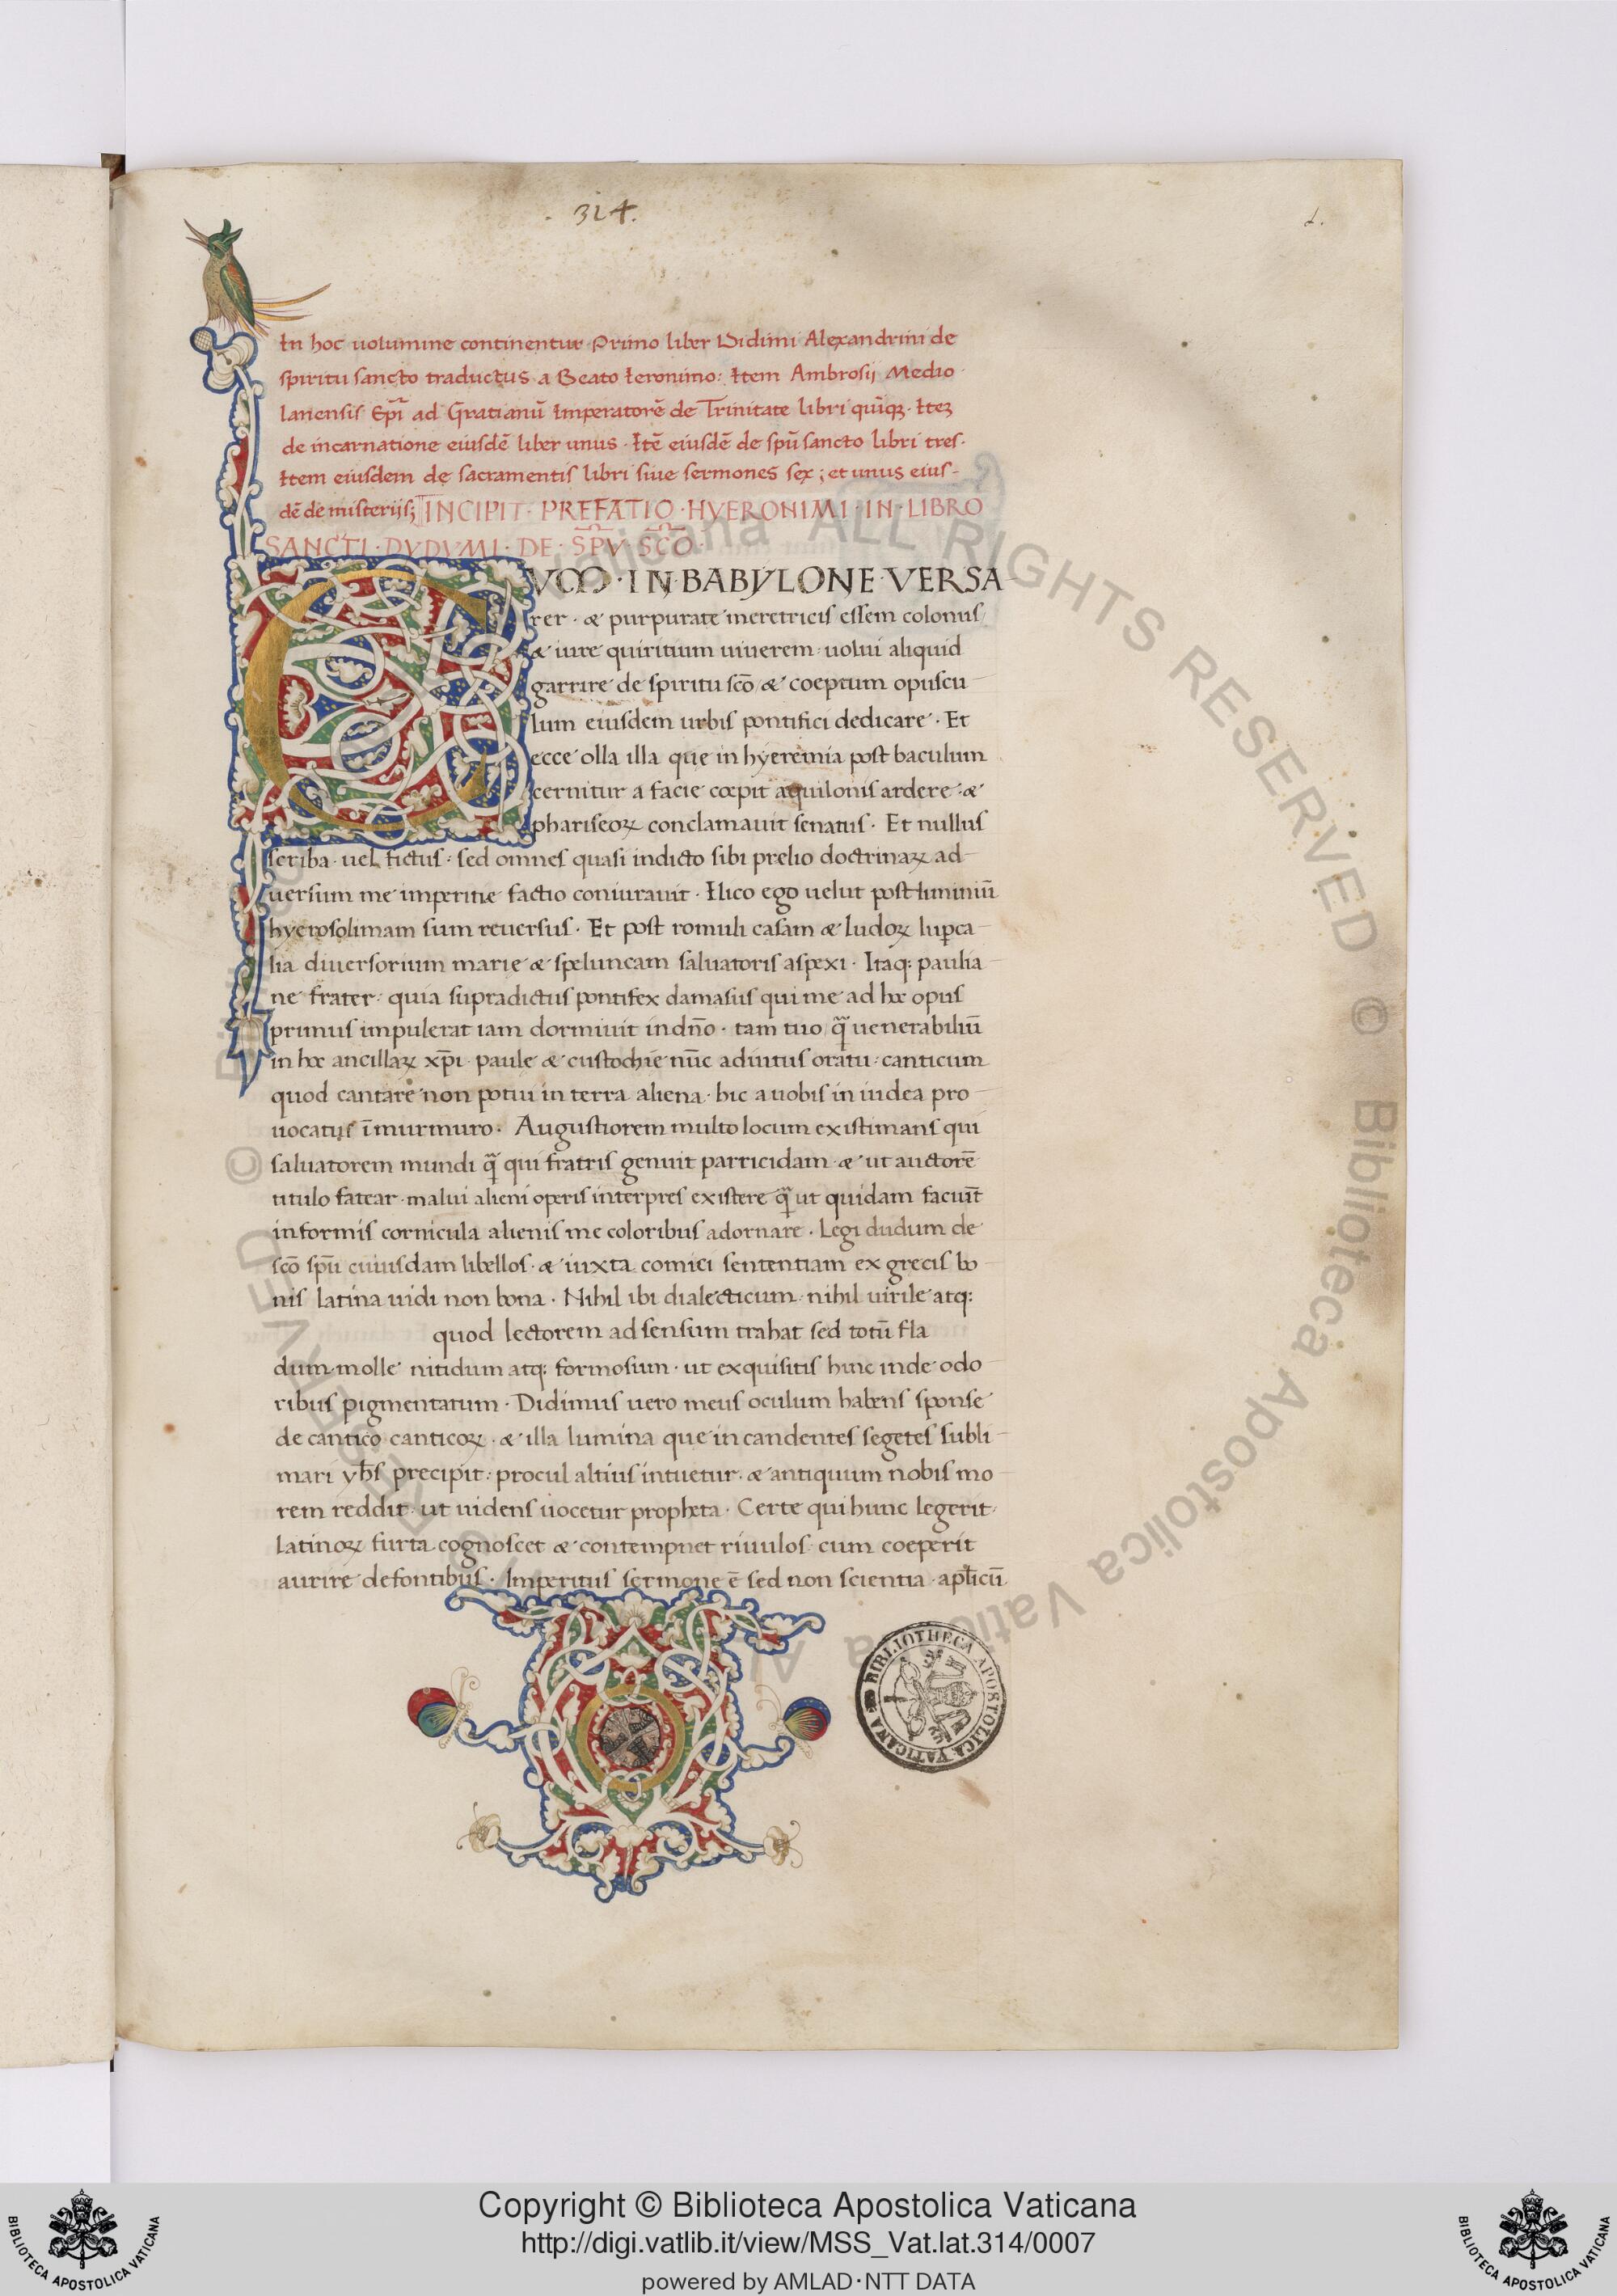 .314.
1.
In hoc uolumine continentur Primo liber Didimi Alexandrini de
spiritu sancto traductus a Beato Ieronimo: Item Ambrosij Medio
lanensis Ep̅i ad Gratianū Imperatorē de Trinitate libri quīqꝫ. Iteꝫ
de incarnatione eiusdē liber unus. Itē eiusdē de spū sancto libri tres.
Item eiusdem de sacramentis libri siue sermones sex; et unus eius-
dē de misterijs; INCIPIT · PREFATIO · HYERONIMI · IN · LIBRO
SANCTI · DYDYMI · DE · SP̅V · SC̅O ·
CVM · IN · BABYLONE · VERSA
rer · & purpurate meretricis essem colonus
& iure quiritium uiuerem · uolui aliquid
garrire de spiritu sc̅o & coeptum opuscu
lum eiusdem urbis pontifici dedicare · Et
ecce olla illa que in hyeremia post baculum
cernitur a facie cœpit aquilonis ardere · &
phariseoꝝ conclamauit senatus · Et nullus
scriba · uel fictus : sed omnes quasi indicto sibi prelio doctrinaꝝ ad
uersum me imperitie factio coniurauit · Ilico ego uelut post liminiū
hyerosolimam sum reuersus · Et post romuli casam & ludoꝝ luꝑca
lia diuersorium marie & speluncam saluatoris aspexi · Itaq: paulia
ne frater : quia supradictus pontifex damasus qui me ad hoc opus
primus impulerat iam dormiuit in dn̅o · tam tuo q̃ uenerabiliū
in hoc ancillaꝝ xp̅i paule & eustochie nūc adiutus oratu : canticum
quod cantare non potui in terra aliena · hic a uobis in iudea pro
uocatus īmurmuro · Augustiorem multo locum existimans qui
saluatorem mundi q̃ qui fratris genuit parricidam & ut auctorē
titulo fatear · malui alieni operis interpres existere q̃ ut quidam faciūt
informis cornicula alienis me coloribus adornare · Legi dudum de
sc̅o spū cuiusdam libellos · & iuxta comici sententiam ex grecis bo
nis latina uidi non bona · Nihil ibi dialecticum · nihil uirile atq:
quod lectorem ad sensum trahat sed totū fla
dum · molle nitidum atq: formosum · ut exquisitis hinc inde odo
ribus pigmentatum · Didimus uero meus oculum habens sponse
de cantico canticoꝝ · & illa lumina que in candentes segetes subli
mari yhs̅ precipit : procul altius intuetur · & antiquum nobis mo
rem reddit · ut uidens uocetur propheta · Certe qui hunc legerit
latinoꝝ furta cognoscet & contempnet riuulos cum coeperit
aurire de fontibus · Imperitus sermone ē sed non scientia · apl̅icū
BIBLIOTHECA APOSTOLICA VATICANA
Vaticana ALL RIGHTS RESERVED © Biblioteca Apostolica Vaticana
Copyright © Biblioteca Apostolica Vaticana
http://digi.vatlib.it/view/MSS_Vat.lat.314/0007
powered by AMLAD·NTT DATA
BIBLIOTECA APOSTOLICA VATICANA
BIBLIOTECA APOSTOLICA VATICANA